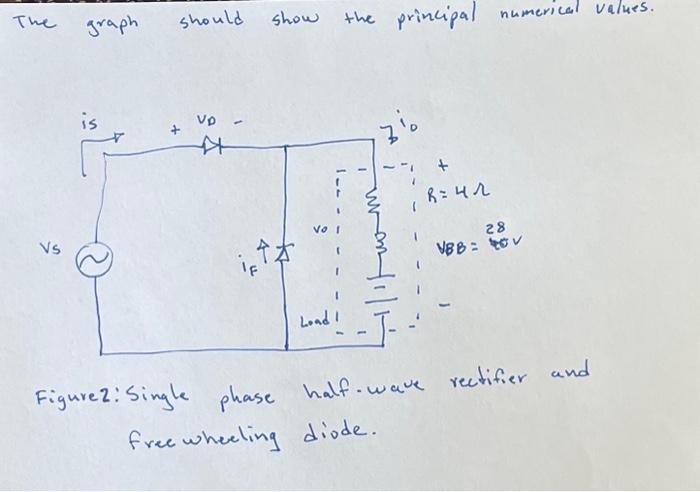 The graph should show the principal numerical values.
is
+ VD -
io
+
R = 4 Ω
Vo
28
VBB = V
Vs
iF
-
Load
Figure2: Single phase half-wave rectifier and
free wheeling diode.